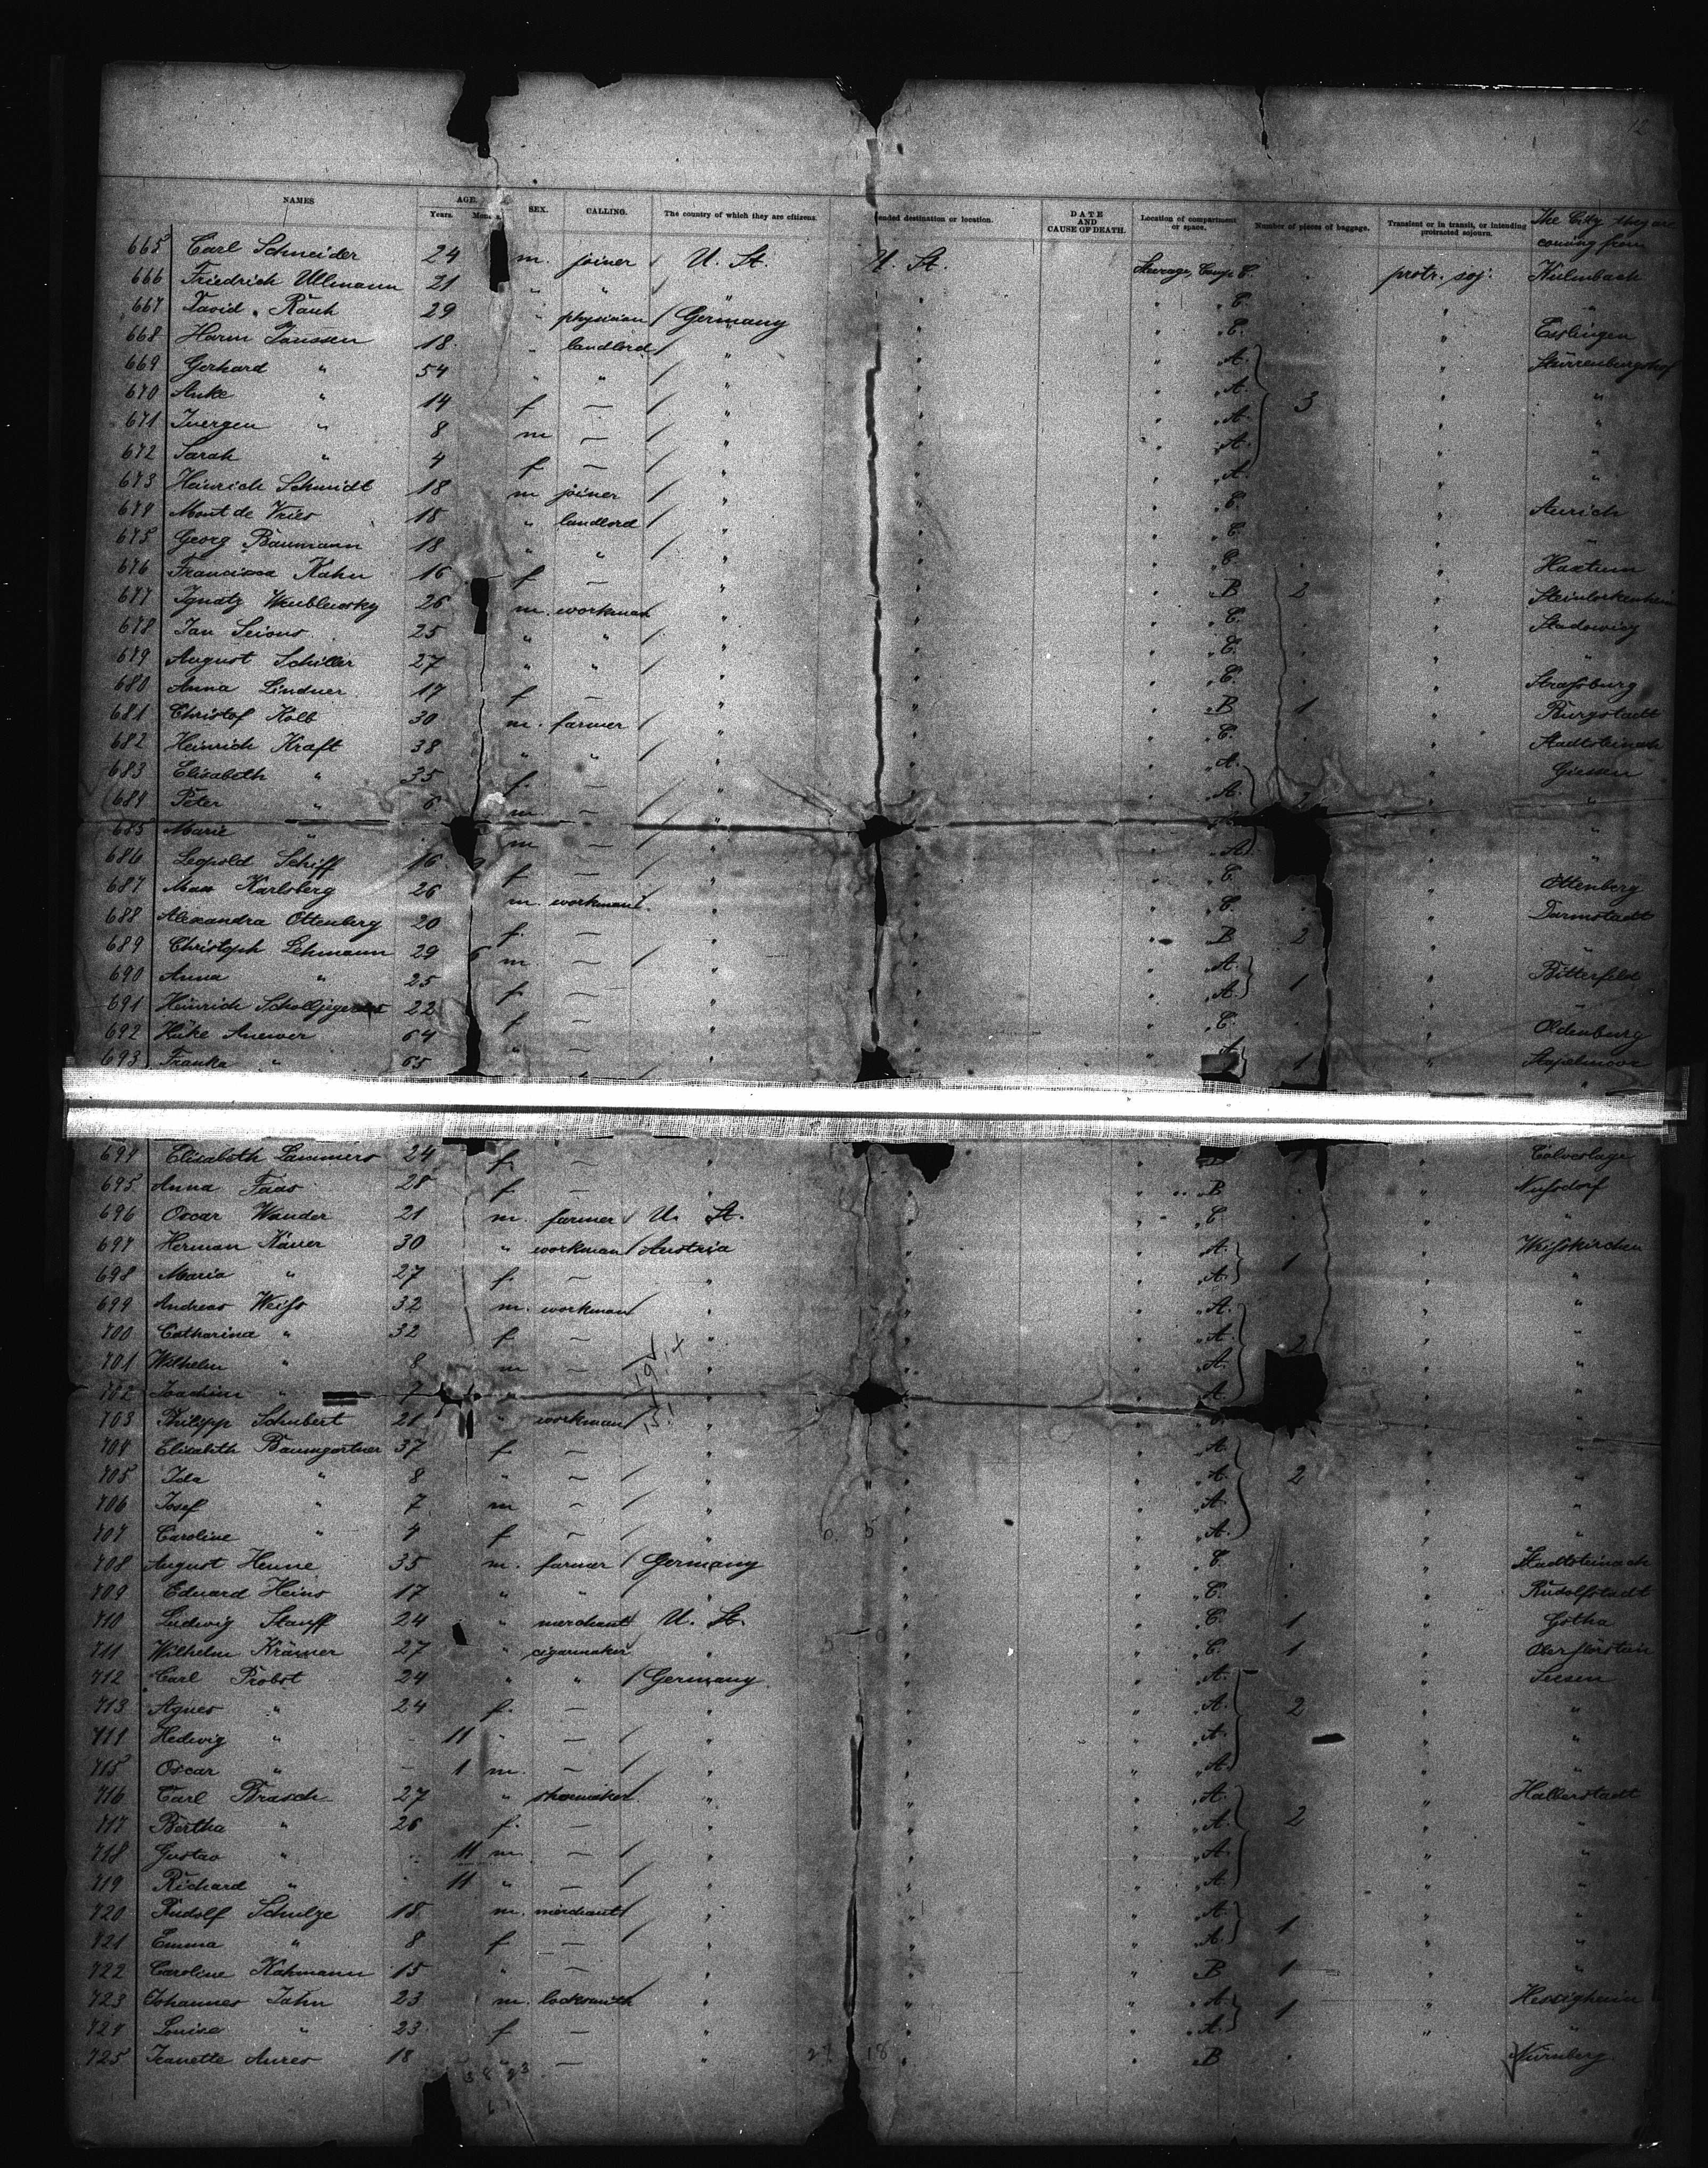 12
NAMES AGE. SEX. CALLING. The country of which they are citizens. ended destination or location. DATE AND CAUSE OF DEATH. Location of compartment or space. Number of pieces of baggage. Transient or in transit, or intending protracted sojourn. The City they are coming from
Years.
665 Carl Schneider 24 m. joiner U. St. U. St. Steerage, Comp. C. protr. soj. Kulmbach
666 Friedrich Ullmann 21 " " " " C. " "
667 David Rauh 29 " physician Germany " C. " Esslingen
668 Harm Janssen 18 " landlord " " A. "
669 Gerhard " 54 " " " " A. " "
670 Anke " 14 f — " " A. 3 " "
671 Juergen " 8 m — " " A. " "
672 Sarah " 4 f — " " A. " "
673 Heinrich Schmidt 18 m joiner " " C. " Aurich
674 Mont de Vries 18 " landlord " " C. " "
675 Georg Baumann 18 " " " " C. " Haxtum
676 Francisca Kahn 16 f — " " B 2 "
677 Ignatz 26 m. workman " " C. "
678 Jan 25 " " " " C. " "
679 August Schiller 27 " " " " C. " Strassburg
680 Anna Lindner 17 f — " " B 1 " Burgstadt
681 Christof Kolb 30 m. farmer " " C. " Stadtsteinach
682 Heinrich Kraft 38 " " " " A. " Giessen
683 Elisabeth " 35 f. — " " A. " "
684 Peter " 6 m — " " " "
685 Marie " — " " " "
686 Leopold Schiff 16 " " C. " Ottenberg
687 Max Karlsberg 26 m. workman " " C. " Darmstadt
688 Alexandra Ottenberg 20 f. — " " B 2 " "
689 Christoph Lehmann 29 m — " " A. 1 " Bitterfeld
690 Anna " 25 f — " " A. " "
691 Heinrich 22 " " C. " Oldenburg
692 64 " — " " A. 1 " Stapelmoor
693 Frauka " 65
694 Elisabeth Lammers 24 f. — " " 1 " Calveslage
695 Anna Faas 28 f — " " B " Nussdorf
696 Oscar Wander 21 m. farmer U. St. " C " "
697 Herman 30 " workman Austria " A. 1 " Weisskirchen
698 Maria " 27 f. — " " A. " "
699 Andreas Weiss 32 m. workman " " A. " "
700 Catharina " 32 f — " " A. 2 " "
701 Wilhelm " 8 m — " " A. " "
702 Joachim " 7 " " A. " "
703 Philipp Schubert 21 " workman " " C. " "
704 Elisabeth Baumgartner 37 f — " " A. " "
705 Ida " 8 " — " " A. 2 " "
706 Josef " 7 m — " " A. " "
707 Caroline " 4 f — " " A. " "
708 August Henne 35 m. farmer Germany " C. " Stadtsteinach
709 Eduard Heins 17 " " " " C. " Rudolfstadt
710 Ludwig Stauff 24 " merchant U. St. " C. 1 " Gotha
711 Wilhelm Krämer 27 " cigarmaker " " C. 1 "
712 Carl Probst 24 " " Germany " A. " Seesen
713 Agnes " 24 f. — " " A. 2 " "
714 Hedwig " - 11 " — " " A. " "
715 Oscar " - 1 m. — " " A. " "
716 Carl Brasch 27 " shoemaker " " A. " Halberstadt
717 Bertha " 26 f. — " " A. 2 " "
718 Gustav " 11 m. — " " A. " "
719 Richard " 11 " — " " A. " "
720 Rudolf Schulze 18 m. merchant " " A. " "
721 Emma " 8 f — " " A. 1 " "
722 Caroline Kahmann 15 " — " " B 1 " "
723 Johannes Jahn 23 m. locksmith " " A. 1 " Hessigheim
724 Louise " 23 f — " " A. " "
725 Jeanette Aures 18 " — " " B " Nürnberg